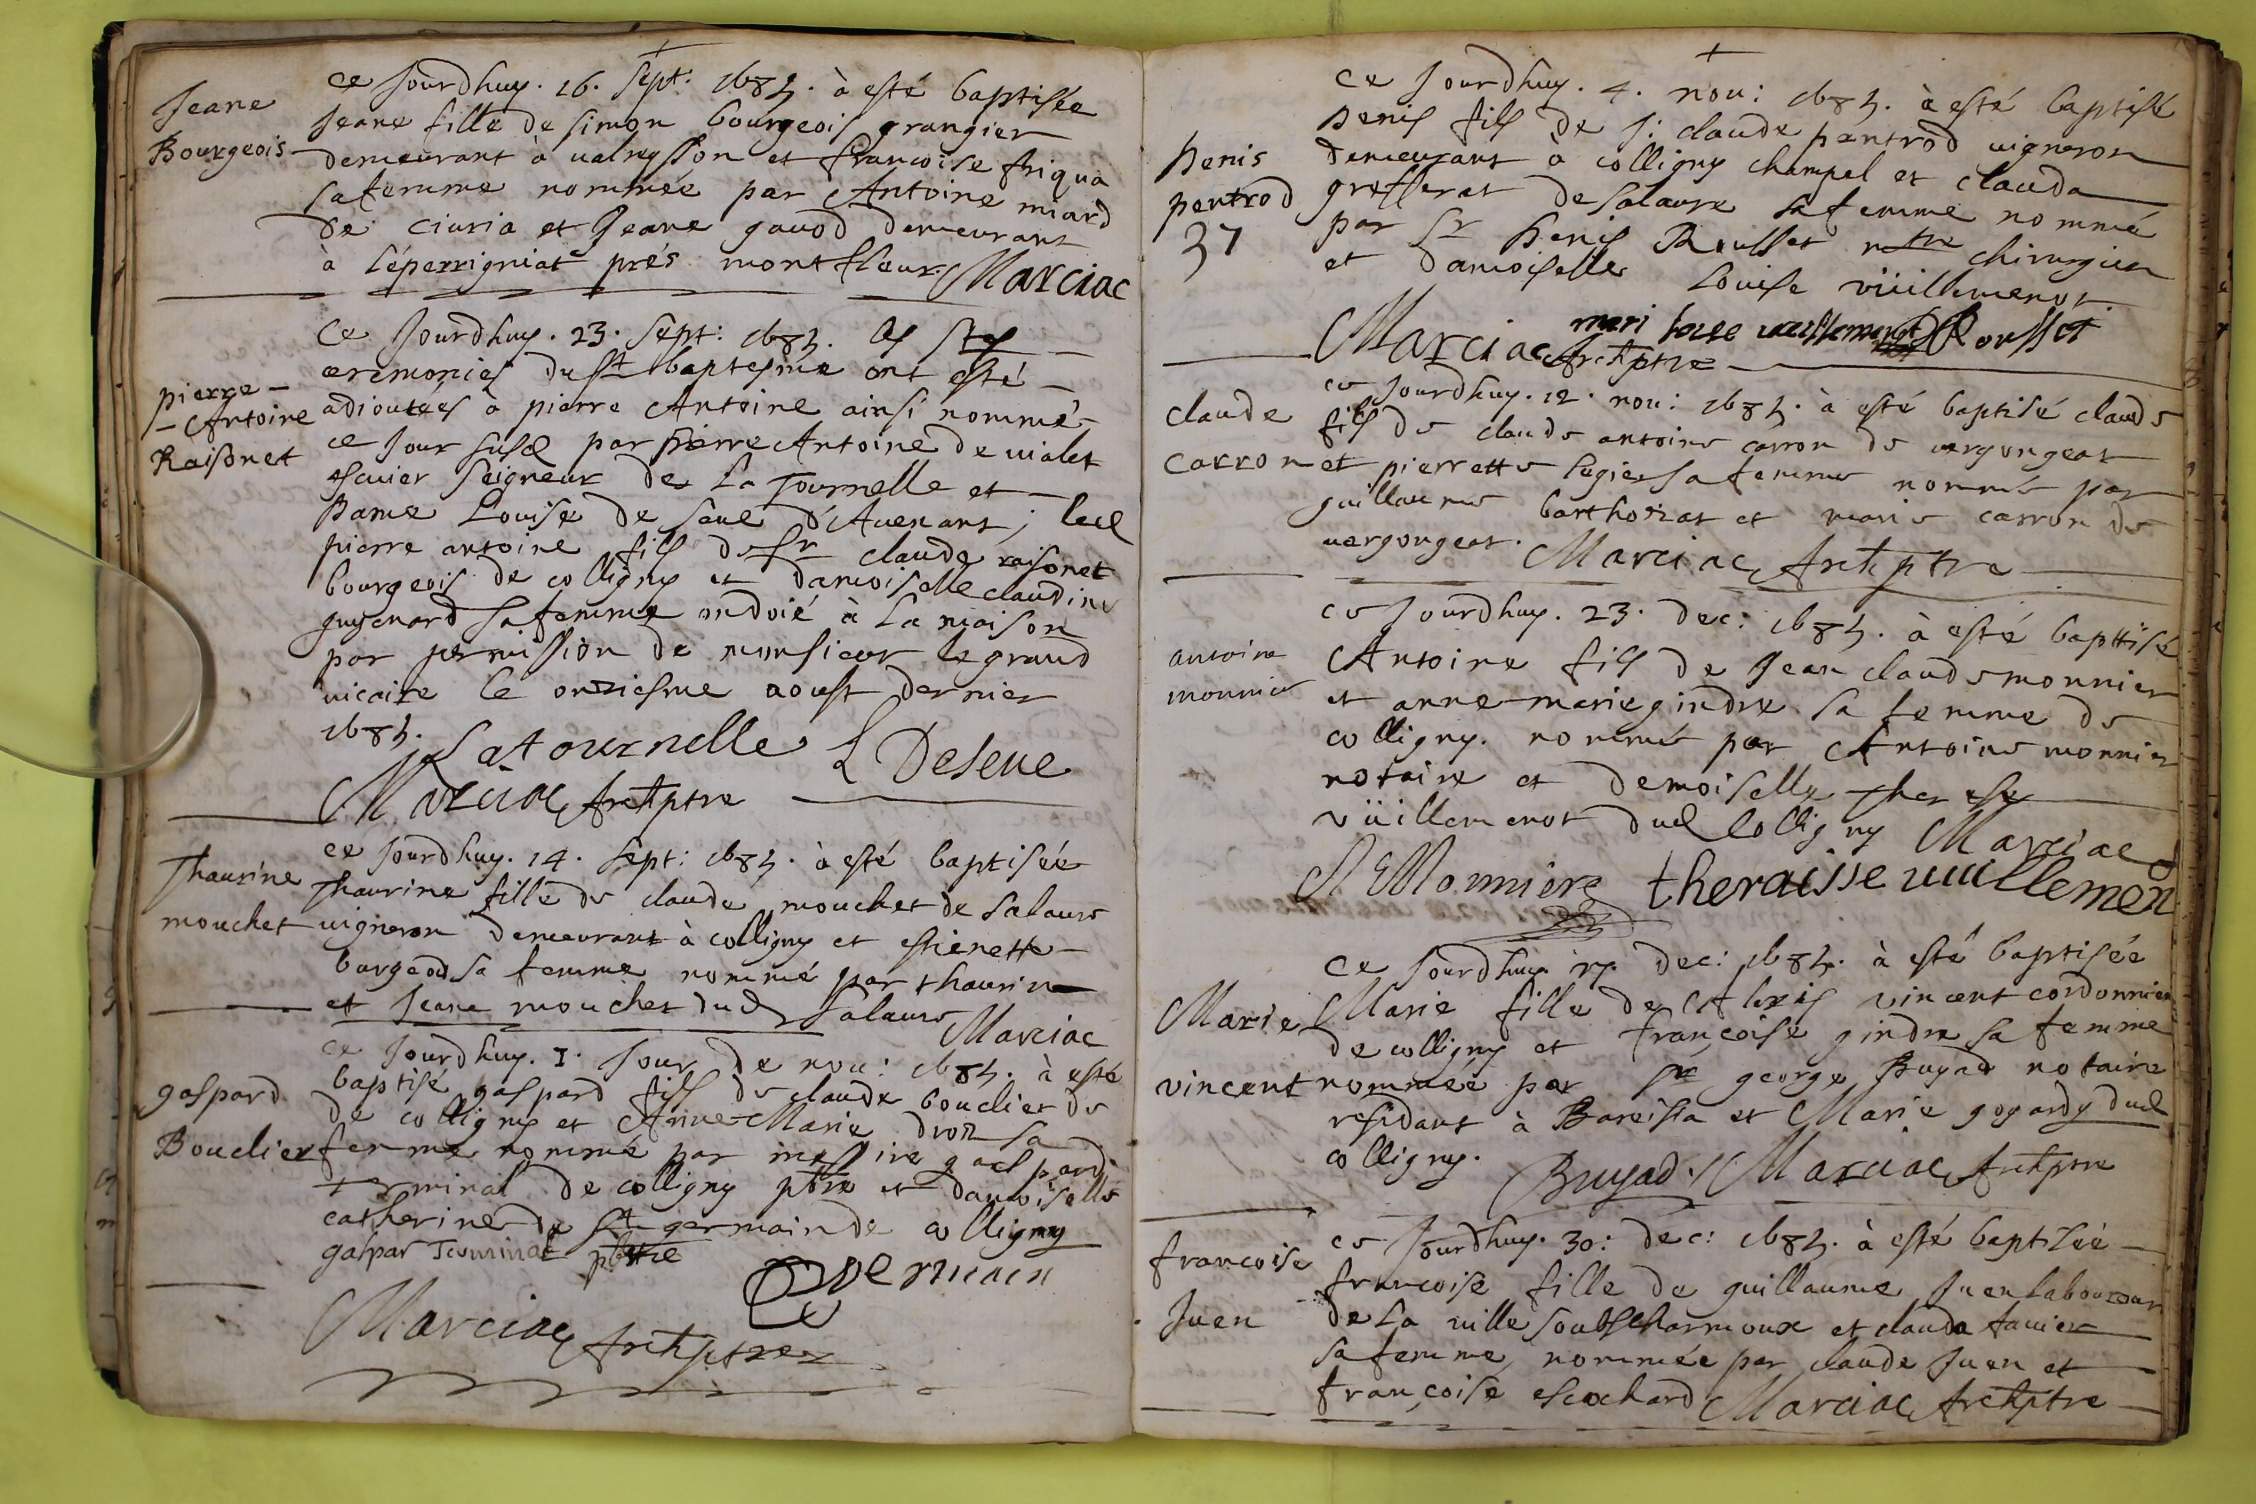 Jeane
Bourgeois
ce Jourdhuy. 16. Sept: 1684. à esté baptisée
Jeane fille de simon bourgeois grangier
demeurant à valnysson et francoise friqua
sa femme nommée par Antoine miard
de Ciuria et Jeane gauod demeurant
à l'éperrigniat prés montfleur. Marciac
pierre -
- Antoine
Raisonet
Ce Jourdhuy. 23. Sept: 1684. les stes
ceremonies du st baptesme ont esté
adioutees à pierre Antoine ainsi nommé
ce Jour susd par pierre Antoine de uialet
escuier seigneur de La Tournelle et
Dame Louise de seue d'Auenans; led
pierre antoine fils de sr claude raisonet
bourgeois de colligny et damoiselle claudine
guyenard sa femme ondoié à La maison
par permission de monsieur le grand
uicaire le onziesme aoust dernier
1684.
Latournelle L Deseue
Marciac Archptre
Thaurine
mouchet
ce Jourdhuy. 14. Sept: 1684. à esté baptisée
Thaurine fille de claude mouchet de salaure
uigneron demeurant à colligny et estienette
bargeod sa femme nommé par thaurine
et Jeane mouchet dud Salaure Marciac
gaspard
Bouclier
ce Jourdhuy. I. Jour de nou: 1684. à esté
baptisé gaspard fils de claude bouclier de
de colligny et Anne-Marie droz sa
femme nommé par messire gaspard
Terminal de colligny pbre et damoiselle
catherine de st germain de colligny
gaspar Terminal pbstre
Germain
Marciac Archptre
Denis
pentrod
37
ce Jourdhuy. 4. nou: 1684. à esté baptisé
Denis fils de s: claude pentrod uigneron
demeurant à colligny champel et clauda
grefferat de salaure sa femme nommé
par sr Denis Rousset mtre chirurgien
et damoiselle Louise vüillemenot.
Marciac Archptre
mari louise uuillemenot D Rousset
claude
carron
ce Jourdhuy. 12. nou: 1684. à esté baptisé claude
fils de claude antoine carron de uergongeat
et pierrette legier sa femme nommé par
guillaume barthozat et marie carron de
uergongeat. Marciac Archptre
antoine
monnier
ce Jourdhuy. 23. dec: 1684. à esté baptisé
Antoine fils de Jean claude monnier
et anne-marie gindre sa femme de
colligny. nommé par Antoine monnier
notaire et demoiselle Therese
vüillemenot dud Colligny Marciac
A Monnier theraisse uuillemen
Marie
vincent
ce Jourdhuy. dec: 1684. à esté baptisée
Marie fille de Alexis vincent cordonnier
de colligny et françoise gindre sa femme
nommée par sr george Buyad notaire
residant à Bareisia et Marie gogardy dud
colligny. Buyad. Marciac Archptre
francoise
Juen
ce Jourdhuy. 30: dec: 1684. à esté baptisée
francoise fille de guillaume Juen laboureur
de La uille soubscharmoux et clauda tauier
sa femme, nommée par claude Juen et
françoise escochard Marciac Archptre